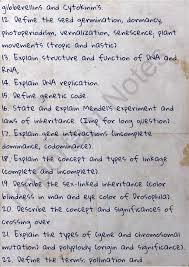 gibberellins and Cytokinin's.
12. Define the seed germination, dormancy,
photoperiodism, vernalization, senescence, plant
movements (tropic and nastic)
13. Explain structure and function of DNA and
RNA,
14. Explain DNA replication
15. Define genetic code
16. State and explain Mendel's experiment and
laws of inheritance (Imp for long question)
17. Explain gene interactions (incomplete
dominance, codominance).
18. Explain the concept and types of linkage
(complete and incomplete).
19. Describe the sex-linked inheritance (color
blindness in man and eye color of Drosophila).
20. Describe the concept and significances of
crossing over
21. Explain the types of (gene and chromosomal
mutation) and polyploidy (origin and significance).
22. Define the terms; pollination and
Notes